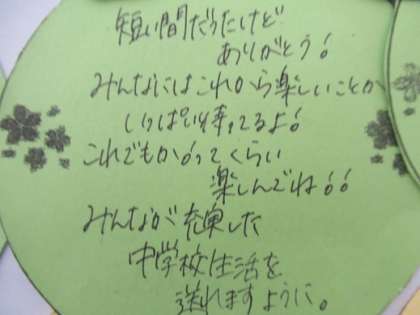 短い間だったけど
ありがとう!
みんなにはこれから楽しいことが
いっぱい待ってるよ!
これでもかってくらい
楽しんでね!!
みんなが充実した
中学校生活を
送れますように。